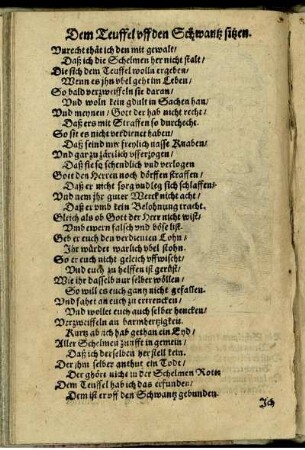 Dem Teuffel vff den Schwantz sitzen.
Vnrecht thät ich den mit gewalt/
Daß ich die Schelmen her nicht stalt/
Die sich dem Teuffel wolln ergeben/
Wenn es jhn vbel geht im Leben/
So bald verzweiffeln sie daran/
Vnd woln kein gdult in Sachen han/
Vnd meynen/ Gott der hab nicht recht/
Daß ers mit Straffen so durchecht.
So sie es nicht verdienet haben/
Daß seind mir freylich nasse Knaben/
Vnd gar zu zärtlich vfferzogen/
Daß sie so schendlich vnd verlogen
Gott den Herren noch dörffen straffen/
Daß er nicht sorg vnd leg sich schlaffen/
Vnd nem jhr guter Werck nicht acht/
Daß er vmb kein Belohnung tracht.
Gleich als ob Gott der Herr nicht wist/
Vmb ewern falsch vnd böse list.
Geb er euch den verdienten Lohn/
Ihr würdet warlich vbel stohn.
So er euch nicht gleich vffwischt/
Vnd euch zu helffen ist gerüst/
Wie jhr dasselb nur selber wöllen/
So will es euch gantz nicht gefallen.
Vnd fahet an euch zu ertrencken/
Vnd wollet euch auch selber hencken/
Verzweiffeln an barmhertzigkeit.
Kurtz ab ich hab gethan ein Eyd/
Aller Schelmen zunfft in gemein/
Daß ich derselben her stell kein.
Der jhm selber anthut ein Todt/
Der ghört nicht in der Schelmen Rott:
Dem Teuffel hab ich das erfunden/
Dem ist er vff den Schwantz gebunden.
Ich